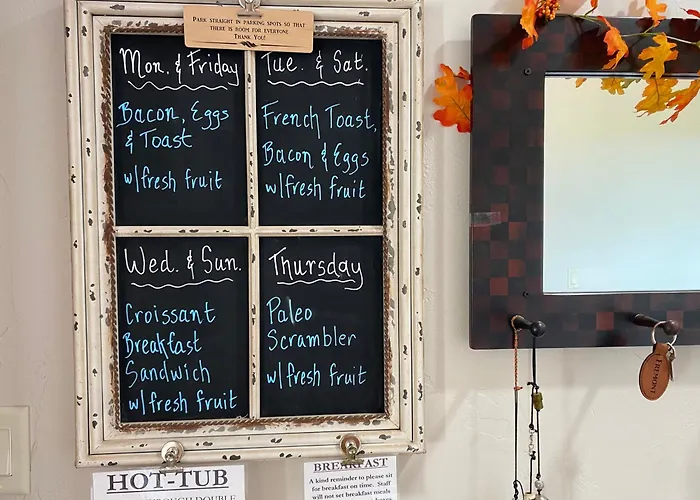 PARK STRAIGHT IN PARKING SPOTS SO THAT
THERE IS ROOM FOR EVERYONE.
THANK YOU!
Mon. & Friday
Bacon, Eggs
& Toast
w/fresh fruit
Tue. & Sat.
French Toast,
Bacon & Eggs
w/fresh fruit
Wed. & Sun.
Croissant
Breakfast
Sandwich
w/fresh fruit
Thursday
Paleo
Scrambler
w/fresh fruit
HOT-TUB
DOUBLE
BREAKFAST
A kind reminder to please sit
for breakfast on time. Staff
will not set breakfast meals
FREMONT